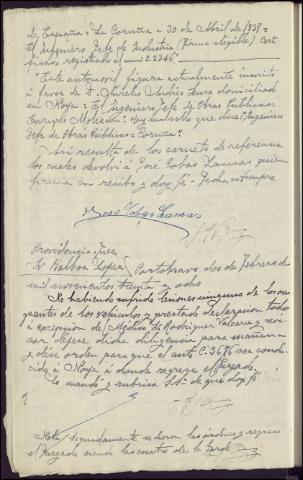 de España = La Coruña a 30 de Abril de 1937 =
El Ingeniero Jefe de Industria (Firma ilegible) Certi
ficado registrado al num C 2346"
"Este automovil figura actualmente inscrito
á favor de D. Aurelio Andrés Lema domiciliado
en Noya = El Ingeniero Jefe de Obras Públicas =
Enrique Molezun = Hay un sello que dice: Ingeniero
Jefe de Obras Públicas = Coruña="
Así resulta de los carnets de referencia
los cuales devolví á José Tobas Lamas quien
firma su recibo y doy fé = Fecha ut supra
José Tobas Lamas
Providencia Juez
Sr Balboa López
Portobravo dos de Febrero de
mil novecientos treinta y ocho
No habiendo sufrido lesiones ninguno de los ocu
pantes de los vehículos y prestado declaracion todos
a excepcion del Médico Sr Rodriguez
dejese dicha diligencia para mañana
y dése orden para que el auto C. 3676 sea con
cida á Noya á donde regresa el Juzgado
Lo mandó y rubrica S.Sª de que doy fé
Nota: Seguidamente se dieron las órdenes y regresó
el Juzgado siendo las cuatro de la tarde